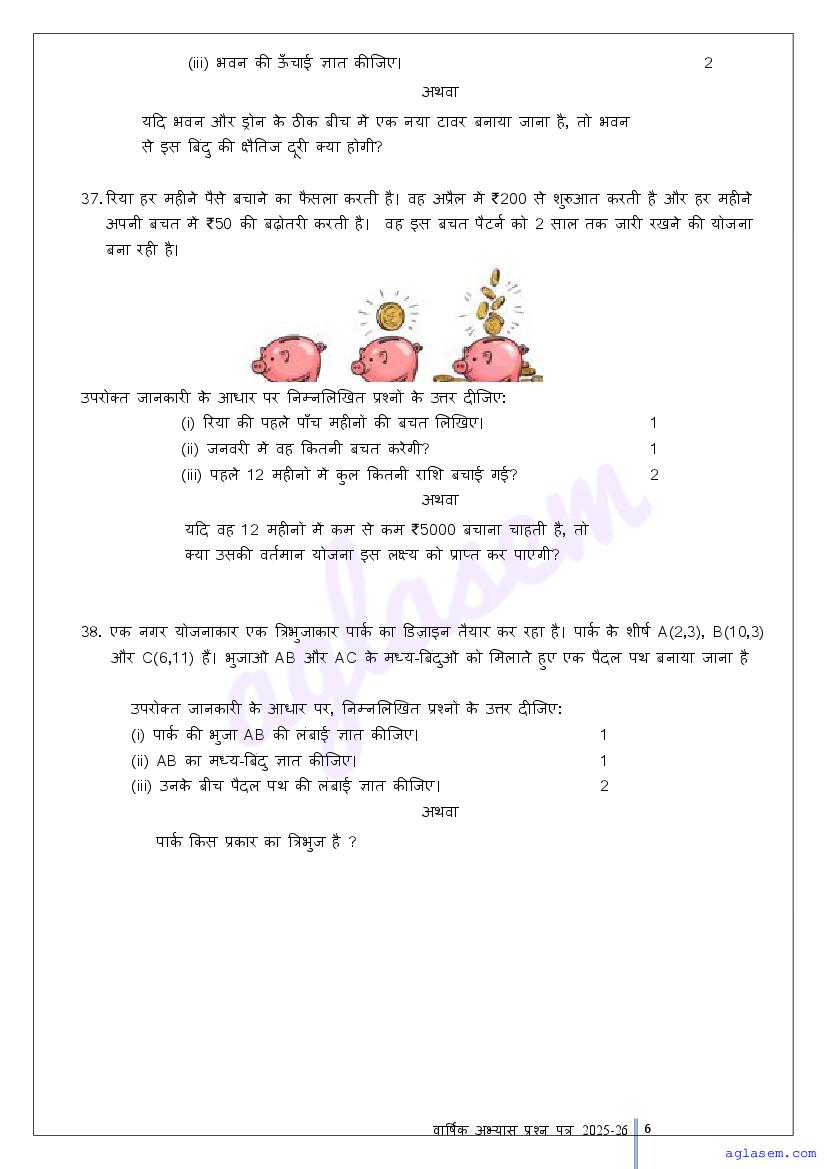 (iii) भवन की ऊँचाई ज्ञात कीजिए। 2
अथवा
यदि भवन और ड्रोन के ठीक बीच में एक नया टावर बनाया जाना है, तो भवन
से इस बिंदु की क्षैतिज दूरी क्या होगी?
37. रिया हर महीने पैसे बचाने का फैसला करती है। वह अप्रैल में ₹200 से शुरुआत करती है और हर महीने
अपनी बचत में ₹50 की बढ़ोतरी करती है। वह इस बचत पैटर्न को 2 साल तक जारी रखने की योजना
बना रही है।
उपरोक्त जानकारी के आधार पर निम्नलिखित प्रश्नों के उत्तर दीजिए:
(i) रिया की पहले पाँच महीनों की बचत लिखिए। 1
(ii) जनवरी में वह कितनी बचत करेगी? 1
(iii) पहले 12 महीनों में कुल कितनी राशि बचाई गई? 2
अथवा
यदि वह 12 महीनों में कम से कम ₹5000 बचाना चाहती है, तो
क्या उसकी वर्तमान योजना इस लक्ष्य को प्राप्त कर पाएगी?
38. एक नगर योजनाकार एक त्रिभुजाकार पार्क का डिज़ाइन तैयार कर रहा है। पार्क के शीर्ष A(2,3), B(10,3)
और C(6,11) हैं। भुजाओं AB और AC के मध्य-बिंदुओं को मिलाते हुए एक पैदल पथ बनाया जाना है
उपरोक्त जानकारी के आधार पर, निम्नलिखित प्रश्नों के उत्तर दीजिए:
(i) पार्क की भुजा AB की लंबाई ज्ञात कीजिए। 1
(ii) AB का मध्य-बिंदु ज्ञात कीजिए। 1
(iii) उनके बीच पैदल पथ की लंबाई ज्ञात कीजिए। 2
अथवा
पार्क किस प्रकार का त्रिभुज है ?
aglasem
वार्षिक अभ्यास प्रश्न पत्र 2025-26 6
aglasem.com